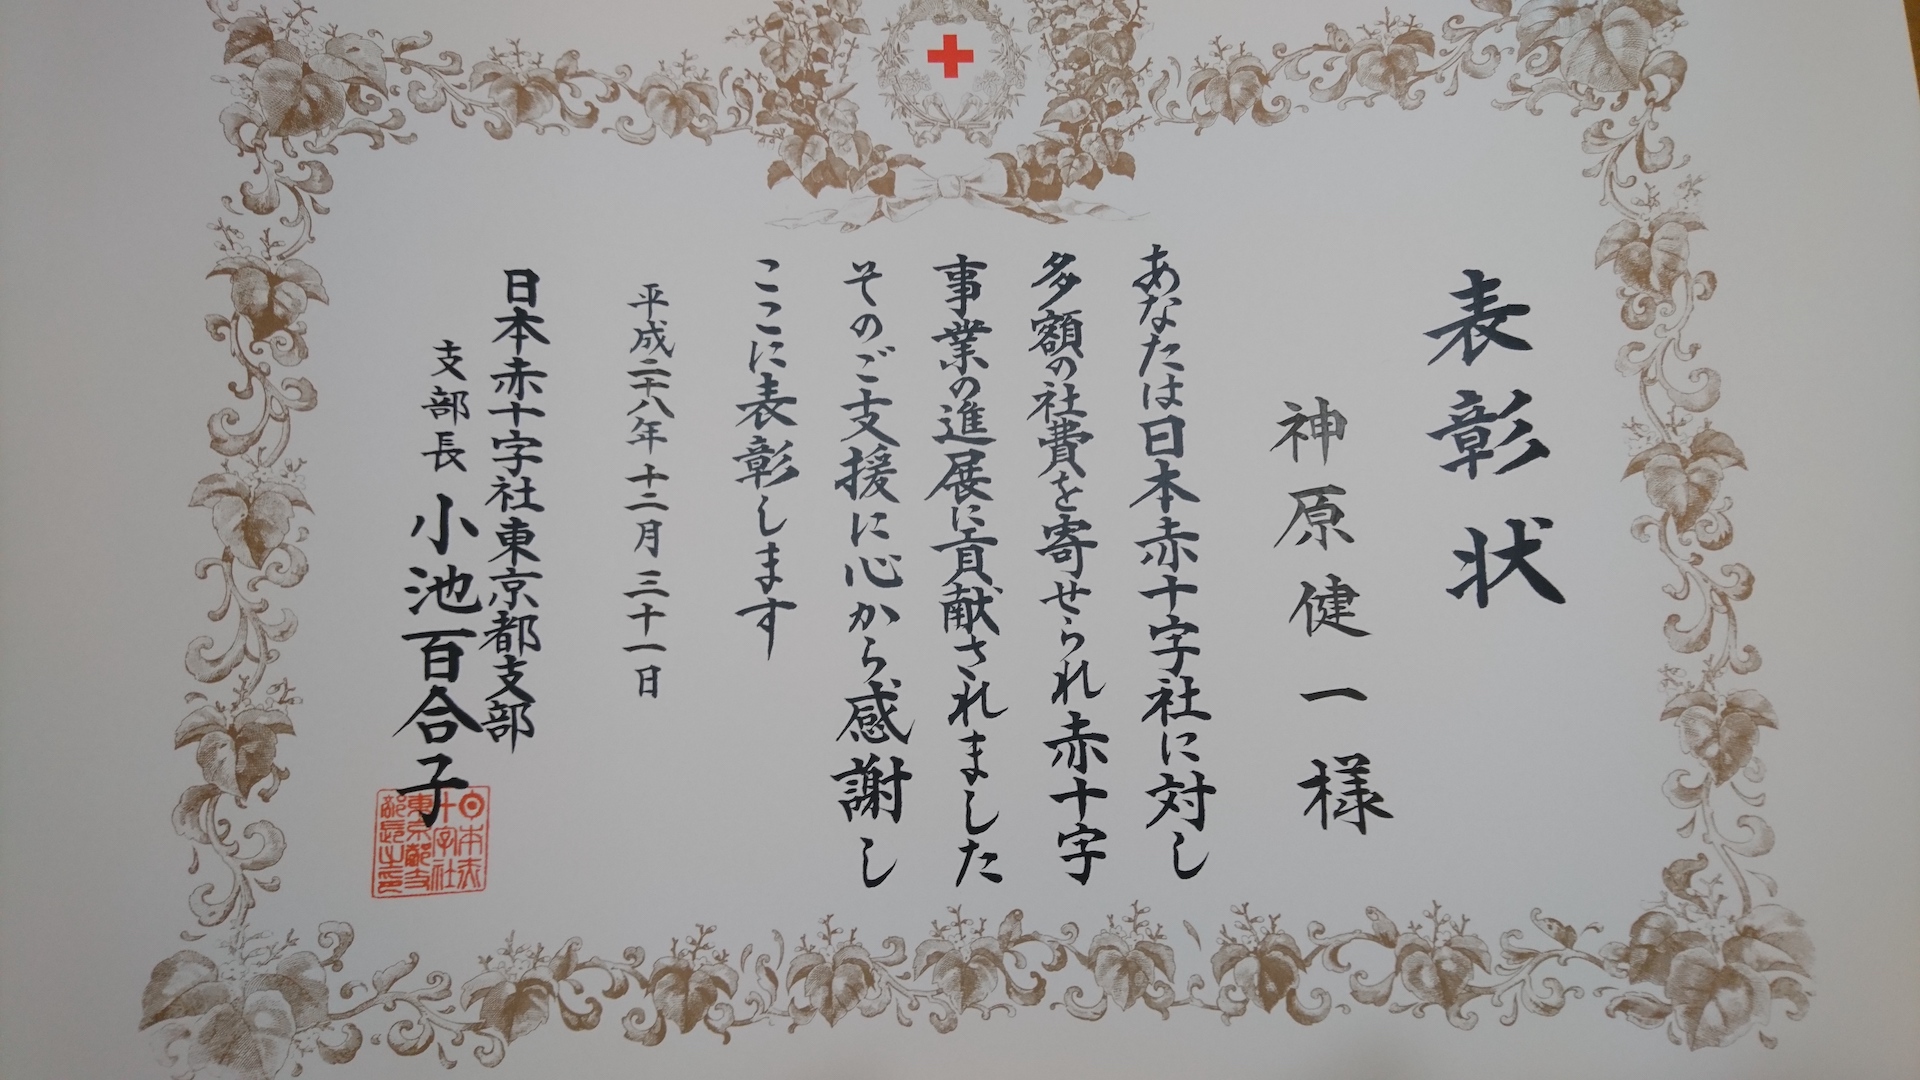 表彰状
神原健一様
あなたは日本赤十字社に対し
多額の社費を寄せられ赤十字
事業の進展に貢献されました
そのご支援に心から感謝し
ここに表彰します
平成二十八年十二月三十一日
日本赤十字社東京都支部
支部長 小池百合子
日本赤
十字社
東京都支
部長之印